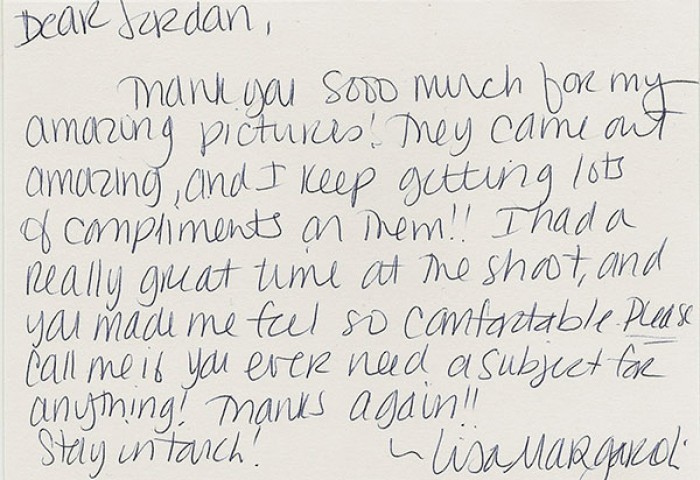 Dear Jordan,
Thank you sooo much for my
amazing pictures! They came out
amazing, and I keep getting lots
of compliments on them!! I had a
really great time at the shoot, and
you made me feel so comfortable. Please
call me if you ever need a subject for
anything! Thanks again!!
Stay in touch! ~ Lisa